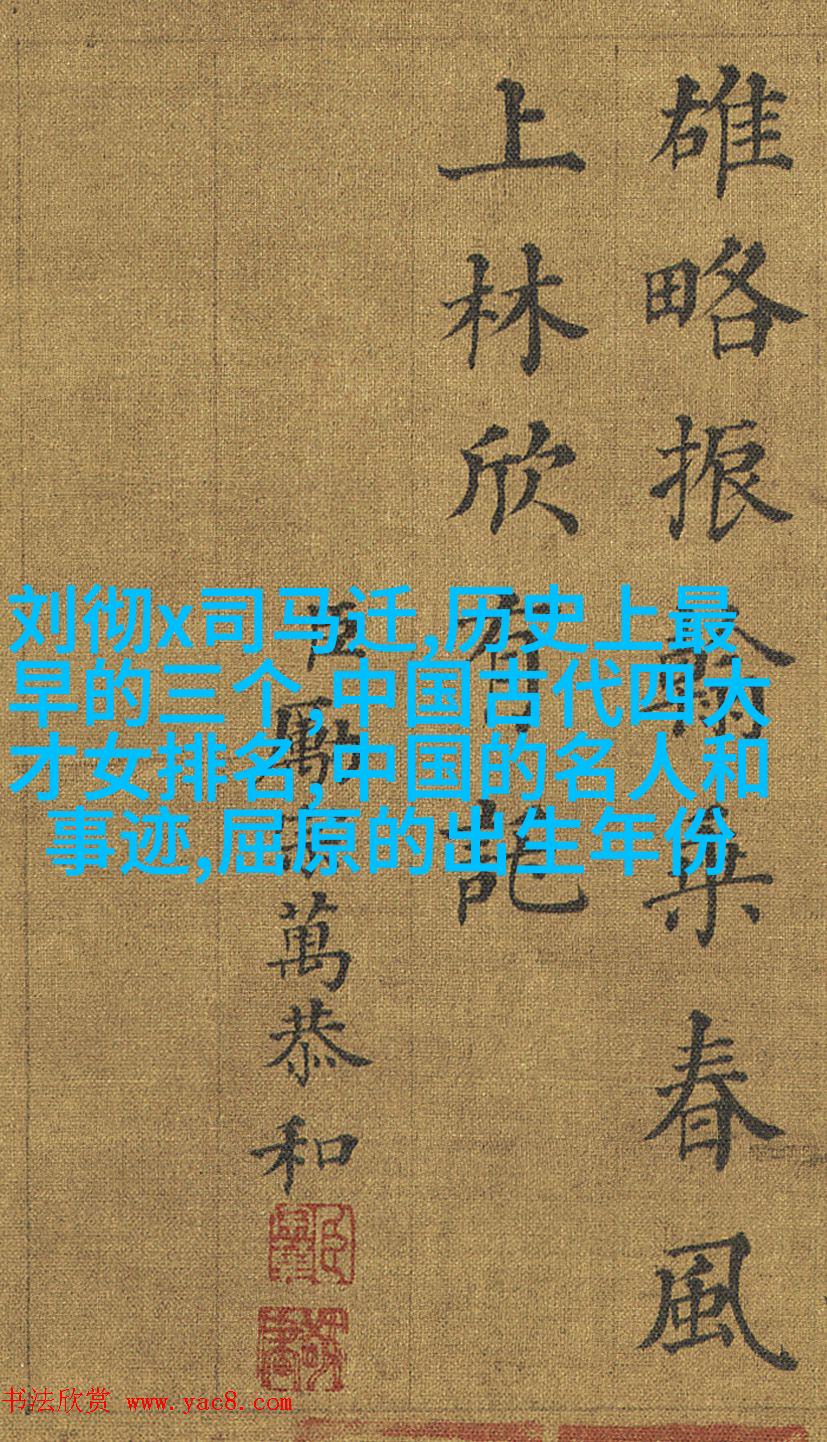 雄略振乘春風
上林欣有記
臣勵宗萬恭和
刘彻x司马迁,历史上最
早的三个,中国古代四大
才女排名,中国的名人和
事迹,屈原的出生年份
书法欣赏 www.yac8.com